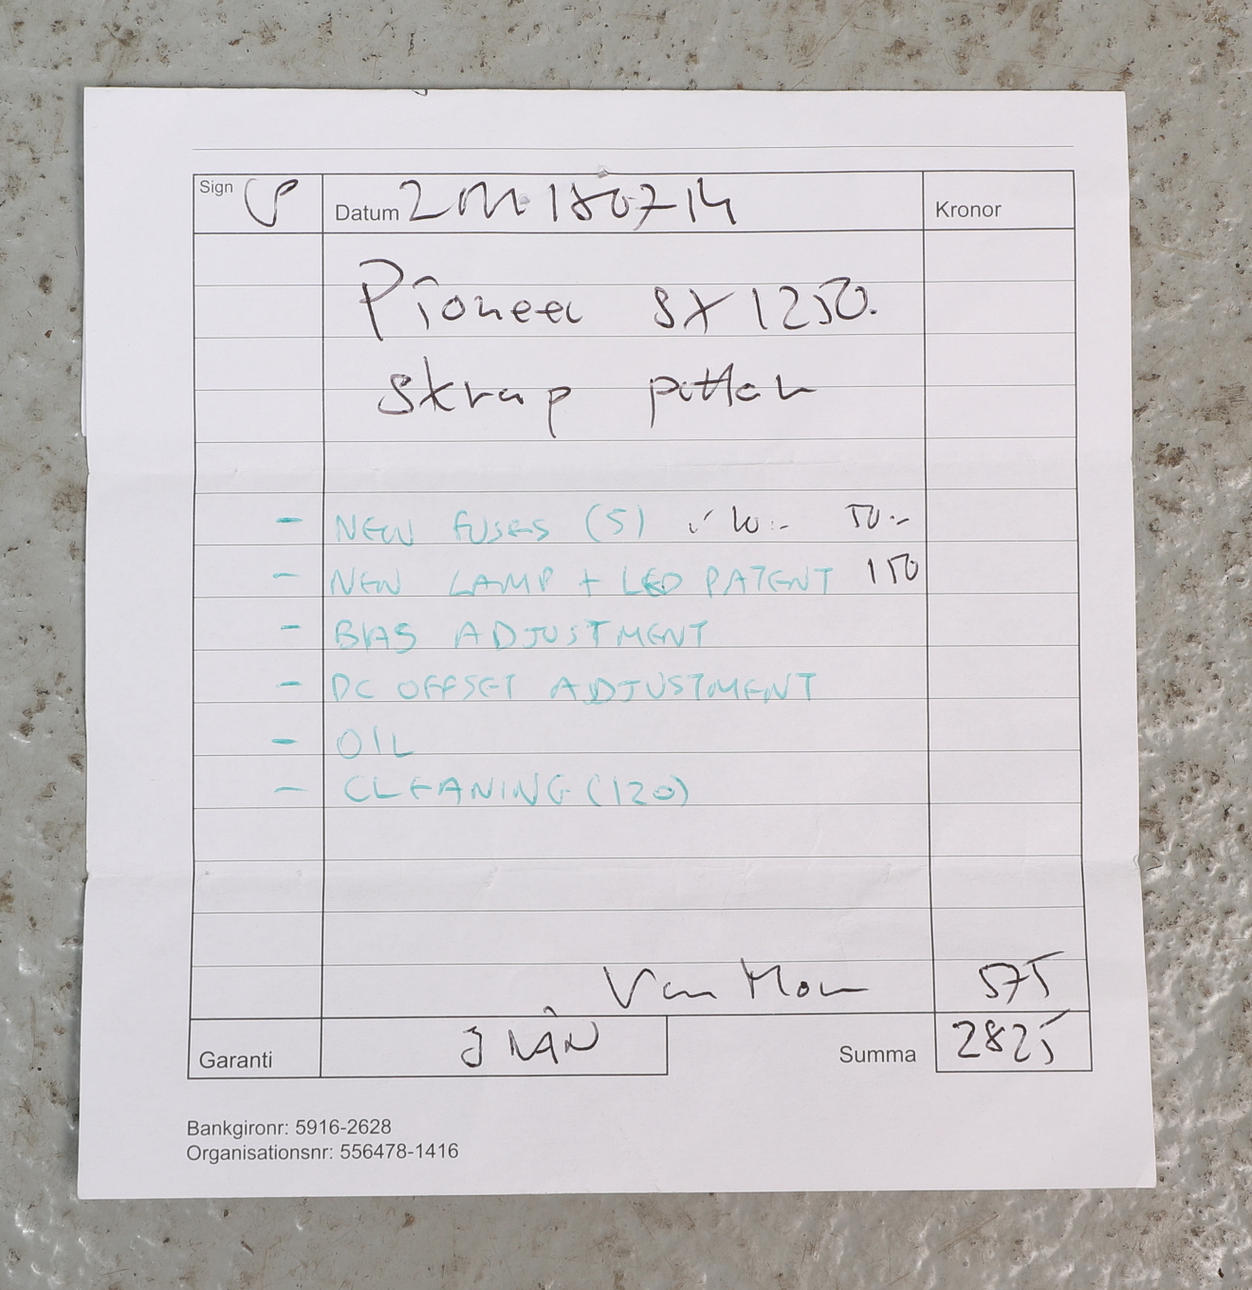 Sign Datum 2M 180714 Kronor
Pioneer SX 1250.
skrap pottar
- NEW FUSES (5) 10:- 50:-
- NEW LAMP + LED PATENT 150
- BIAS ADJUSTMENT
- DC OFFSET ADJUSTMENT
- OIL
- CLEANING (120)
Van Mom 575
Garanti 3 MÅN Summa 2825
Bankgironr: 5916-2628
Organisationsnr: 556478-1416